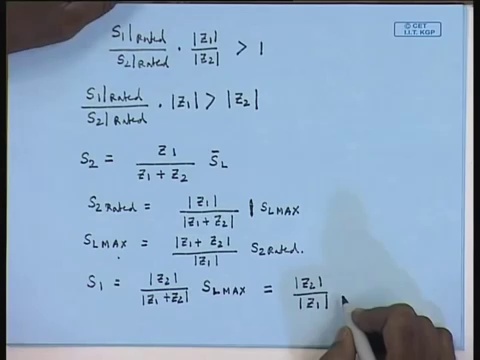 © CET
I.I.T. KGP
S1|Rated / S2|Rated · |Z1| / |Z2| > 1
S1|Rated / S2|Rated · |Z1| > |Z2|
S2 = Z1 / Z1 + Z2 S̄L
S2 Rated = |Z1| / |Z1 + Z2| | SLMAX
SLMAX = |Z1 + Z2| / |Z1| S2 Rated.
S1 = |Z2| / |Z1 + Z2| SLMAX = |Z2| / |Z1|